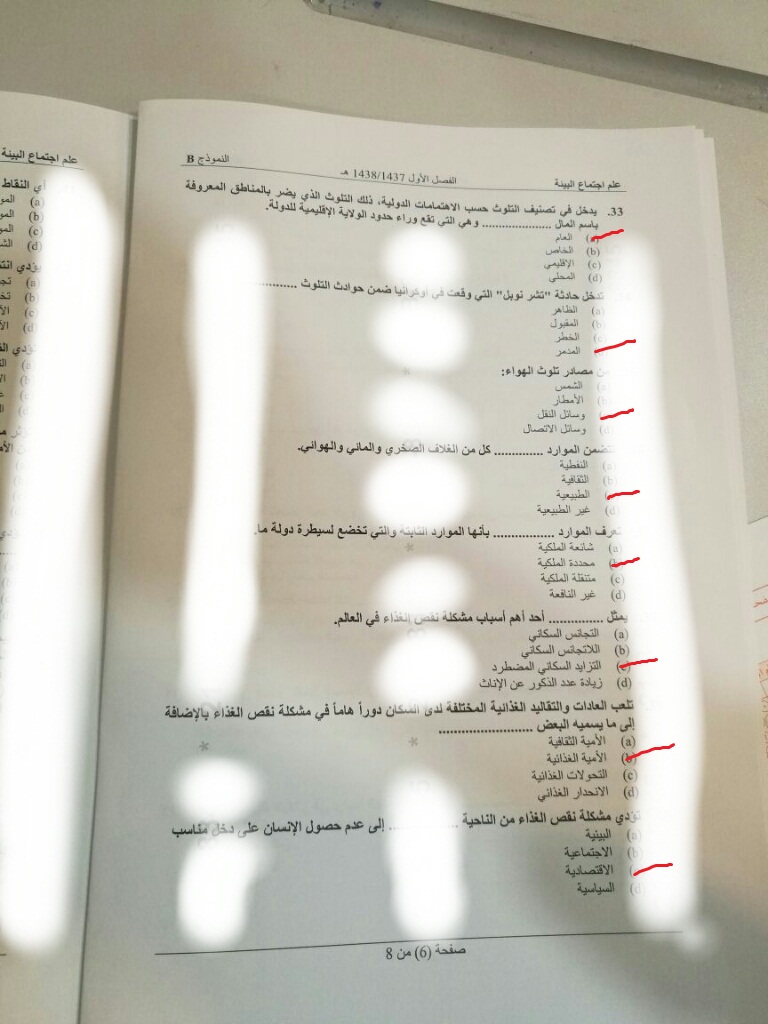 علم اجتماع البيئة
الفصل الأول 1438/1437 هـ
النموذج B
33. يدخل في تصنيف التلوث حسب الاهتمامات الدولية، ذلك التلوث الذي يضر بالمناطق المعروفة
باسم المال .................... وهي التي تقع وراء حدود الولاية الإقليمية للدولة.
العام
(b) الخاص
(c) الإقليمي
(d) المحلي
تدخل حادثة "تشر نوبل" التي وقعت في أوكرانيا ضمن حوادث التلوث ............
(a) الظاهر
(b) المقبول
(c) الخطر
المدمر
من مصادر تلوث الهواء:
(a) الشمس
(b) الأمطار
وسائل النقل
(d) وسائل الاتصال
تتضمن الموارد ............. كل من الغلاف الصخري والمائي والهوائي.
(a) النفطية
(b) الثقافية
الطبيعية
(d) غير الطبيعية
تعرف الموارد ................ بأنها الموارد الثابتة والتي تخضع لسيطرة دولة ما.
(a) شائعة الملكية
(b) محددة الملكية
(c) متنقلة الملكية
(d) غير النافعة
يمثل .............. أحد أهم أسباب مشكلة نقص الغذاء في العالم.
(a) التجانس السكاني
(b) اللاتجانس السكاني
(c) التزايد السكاني المضطرد
(d) زيادة عدد الذكور عن الإناث
تلعب العادات والتقاليد الغذائية المختلفة لدى السكان دوراً هاماً في مشكلة نقص الغذاء بالإضافة
إلى ما يسميه البعض ........................
(a) الأمية الثقافية
(b) الأمية الغذائية
(c) التحولات الغذائية
(d) الانحدار الغذائي
تؤدي مشكلة نقص الغذاء من الناحية ................ إلى عدم حصول الإنسان على دخل مناسب
(a) البيئية
(b) الاجتماعية
الاقتصادية
(d) السياسية
صفحة (6) من 8
علم اجتماع البيئة
أي النقاط
(a)
(b)
(c)
(d)